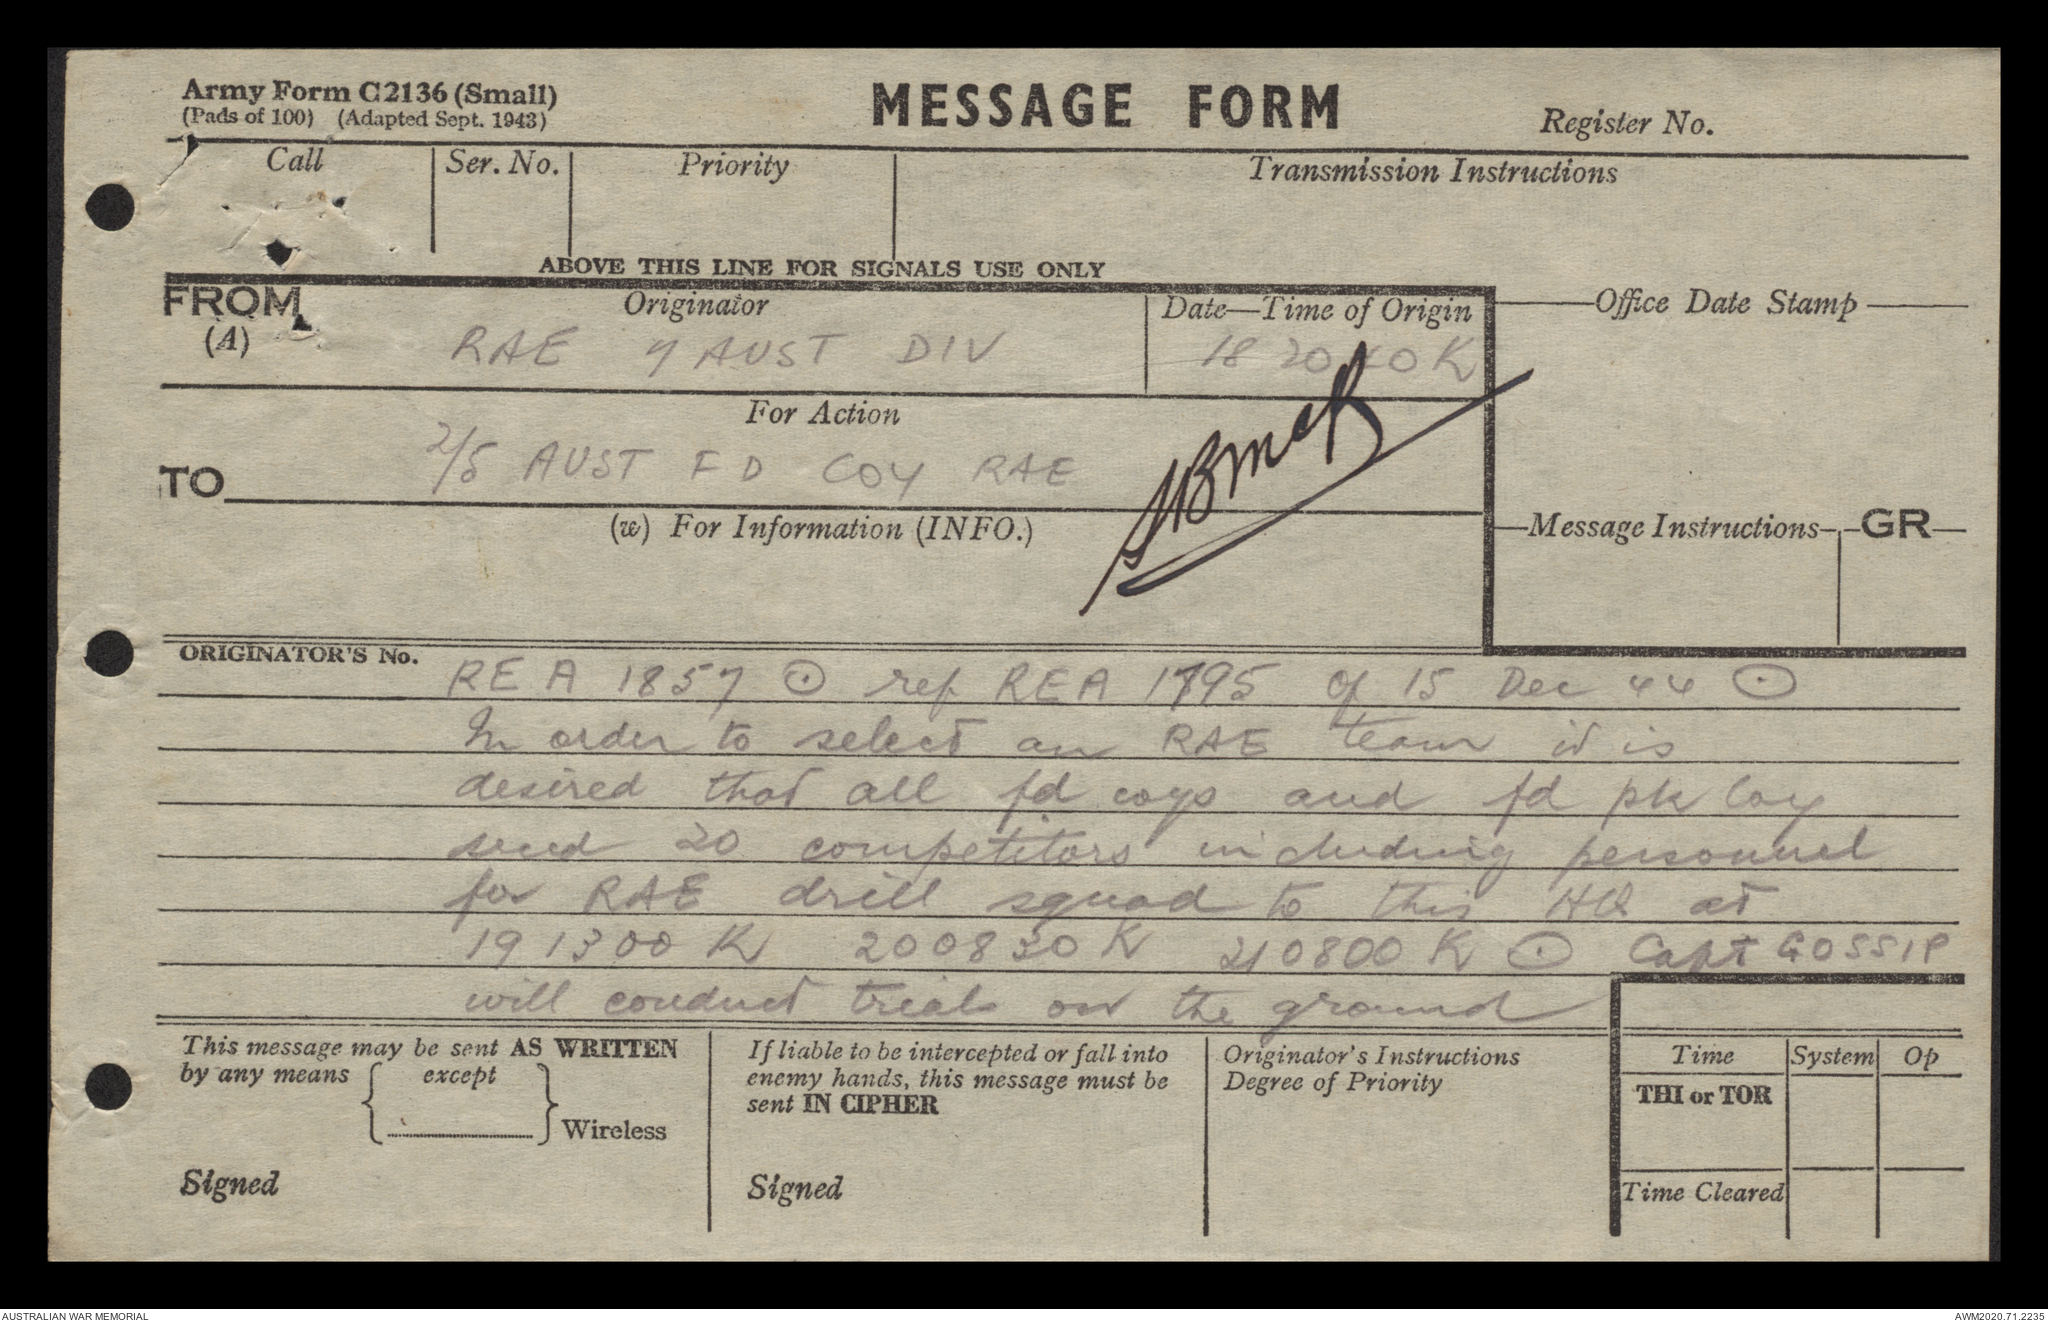 Army Form C2136 (Small)
(Pads of 100) (Adapted Sept. 1943)
MESSAGE FORM
Register No.
Call Ser. No. Priority Transmission Instructions
ABOVE THIS LINE FOR SIGNALS USE ONLY
FROM
(A)
Originator
RAE 7 AUST DIV
Date—Time of Origin
18 2040 K
Office Date Stamp
For Action
TO 2/5 AUST FD COY RAE
(w) For Information (INFO.)
Message Instructions GR
ORIGINATOR'S No.
REA 1857 ⊙ ref REA 1795 of 15 Dec 44 ⊙
In order to select an RAE team it is
desired that all fd coys and fd pk Coy
send 20 competitors including personnel
for RAE drill squad to this HQ at
191300 K 200830 K 210800 K ⊙ Capt GOSSIP
will conduct trials on the ground
This message may be sent AS WRITTEN
by any means except
Wireless
Signed
If liable to be intercepted or fall into
enemy hands, this message must be
sent IN CIPHER
Signed
Originator's Instructions
Degree of Priority
Time System Op
THI or TOR
Time Cleared
AUSTRALIAN WAR MEMORIAL
AWM2020.71.2235